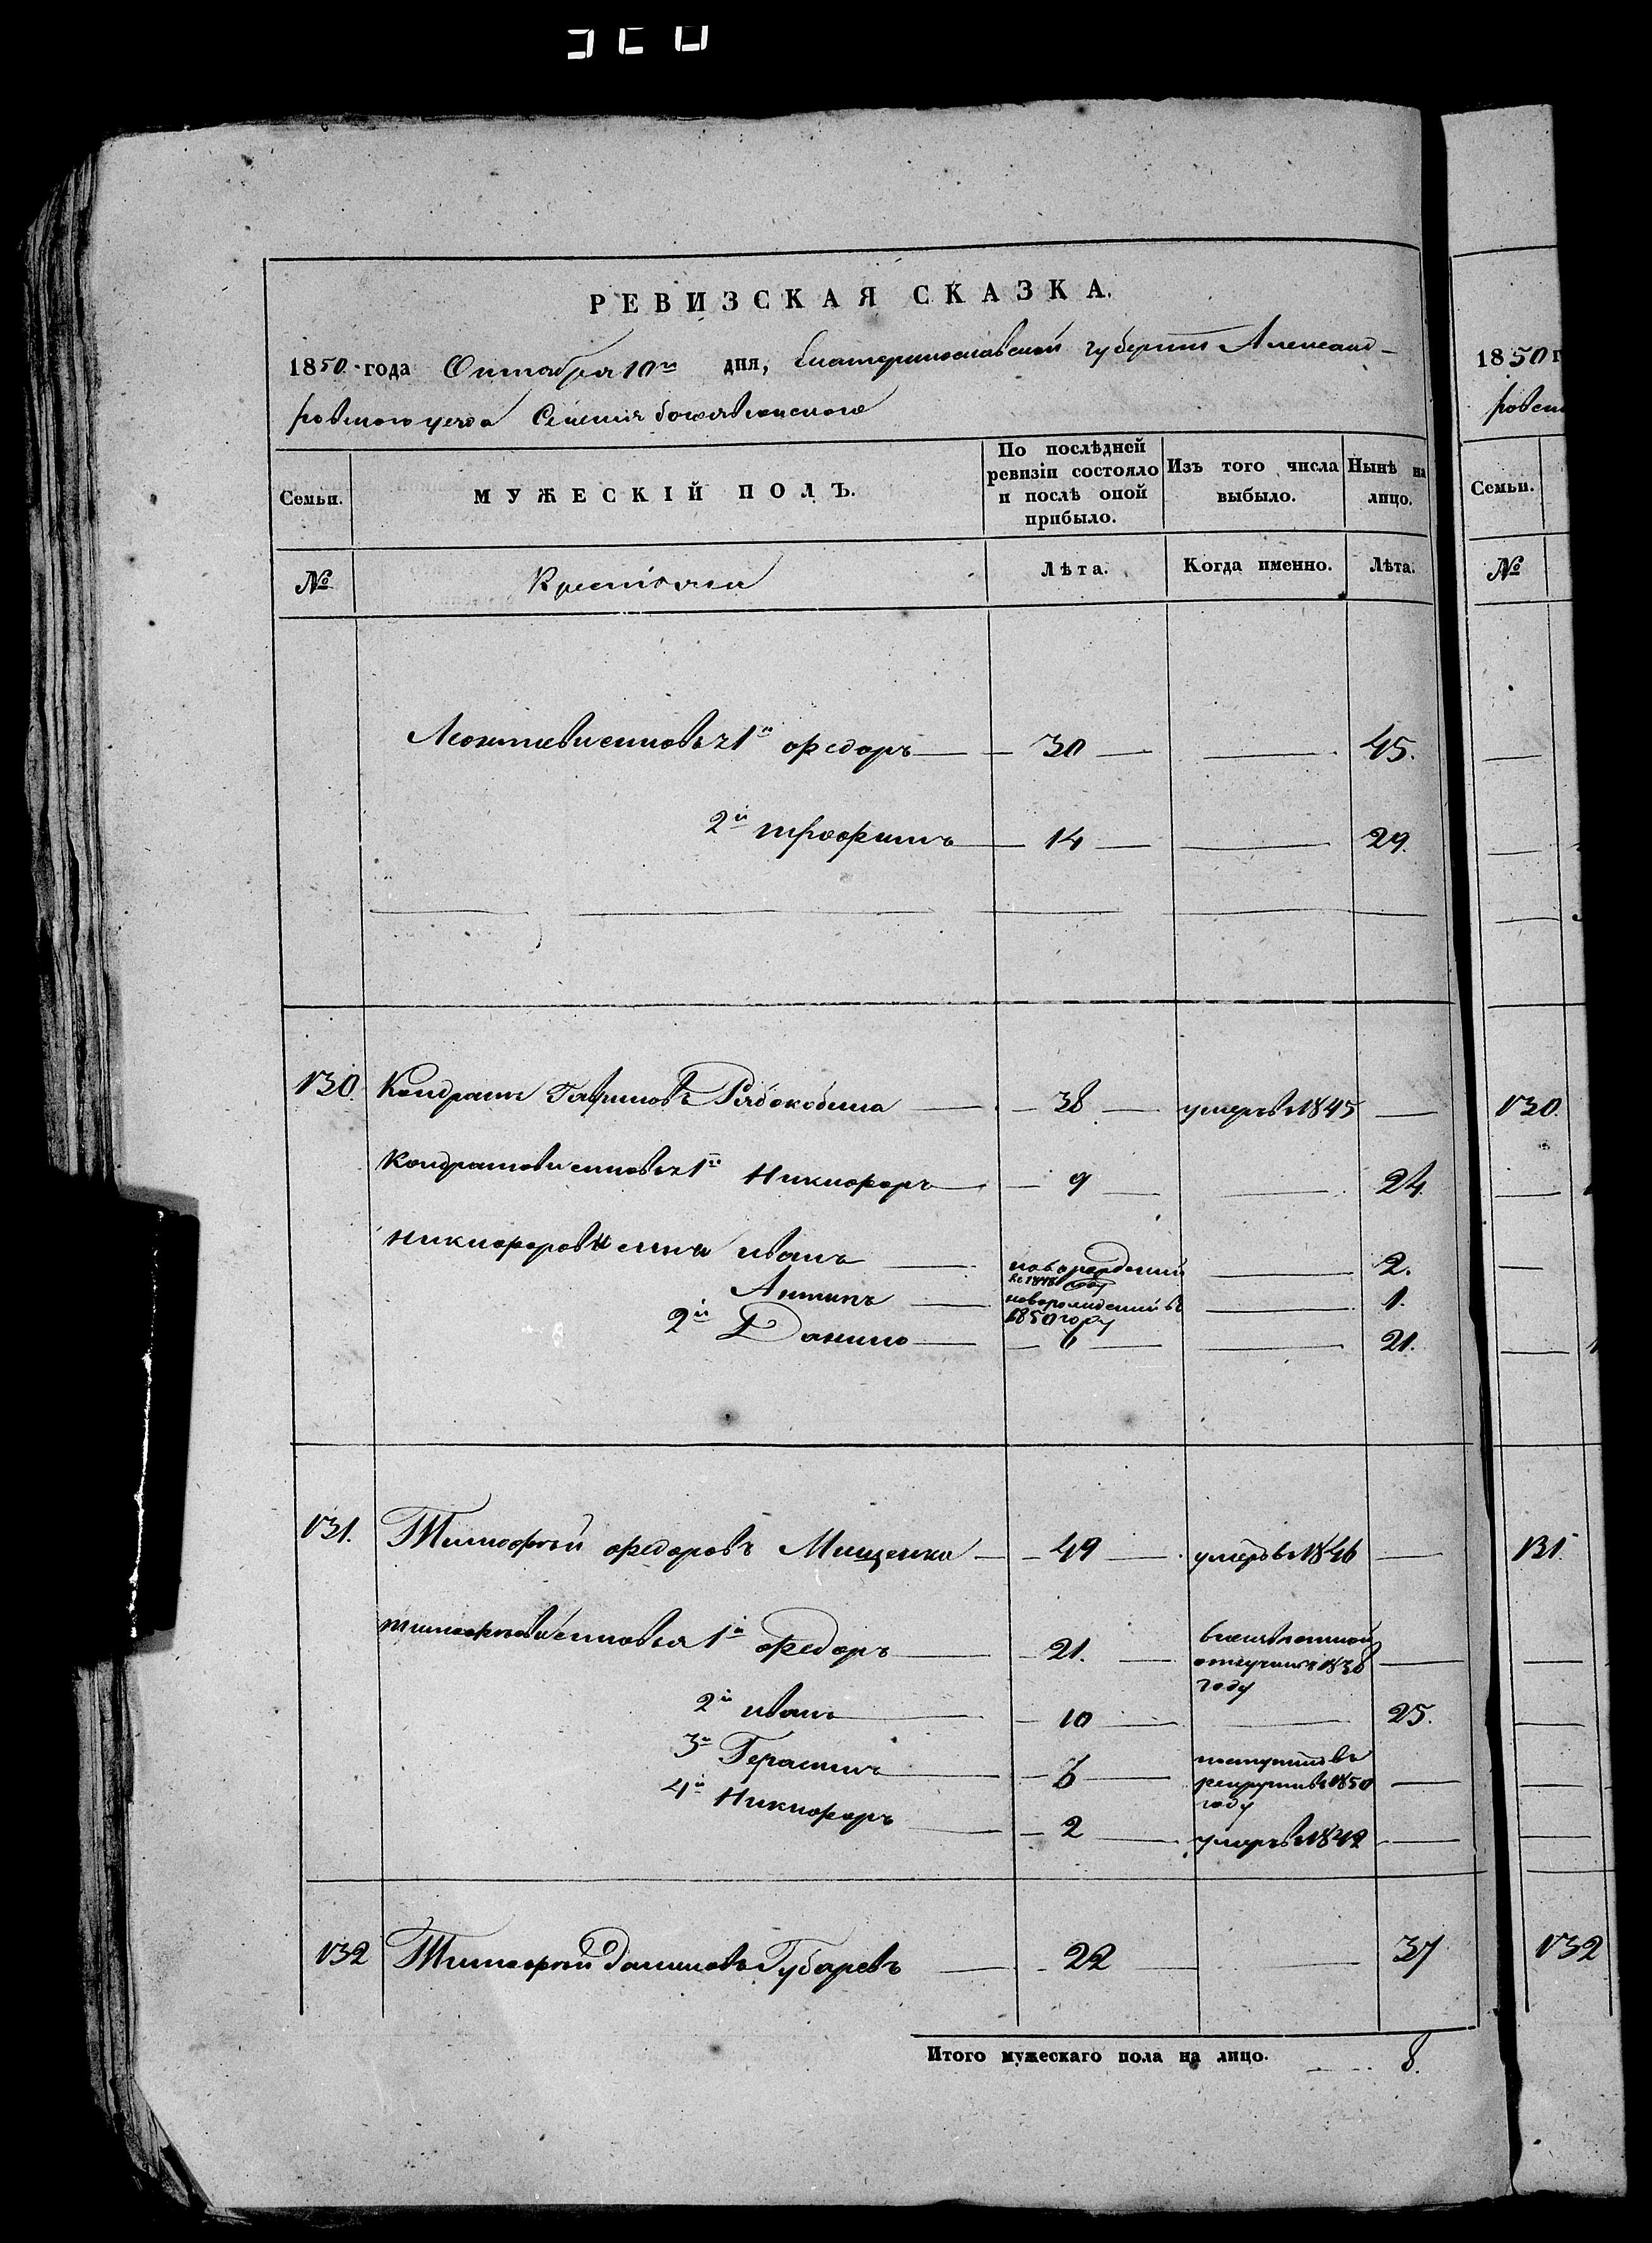 РЕВИЗСКАЯ СКАЗКА.
1850 года Октября 10го дня, Екатеринославской губернии Александ-
ровскаго уезда Селения богоявленского
Семьи.
МУЖЕСКІЙ ПОЛЪ.
По послѣдней ревизіи состояло и послѣ оной прибыло.
Изъ того числа выбыло.
Нынѣ на лицо.
№
Крестьяни
Лѣта.
Когда именно.
Лѣта.
Леонтеви синовья 1й федоръ 30 45.
2й трофимъ 14 29.
130. Кондратъ Гавриловъ Рябокобила 38 умеръ в 1845
Кондратови синовья 1й Никифоръ 9 24
Никифорови сини иванъ новорожденый в 1848 году 2.
Антипъ новорожденый в 1850 году 1.
2й Данило 6 21.
131. Тимофей федоровъ Мищенко 49 умеръ в 1846
тимофееви синовья 1й федоръ 21. 1838 году
2й иванъ 10 25.
3й Герасимъ 6 поступилъ в рекруты в 1850 году
4й Никифоръ 2 умеръ в 1842
132 Тимофей Даниловъ Губаревъ 22 37
Итого мужескаго пола на лицо. 8.
1850 г
ровск
Семьи.
№
130.
131.
132